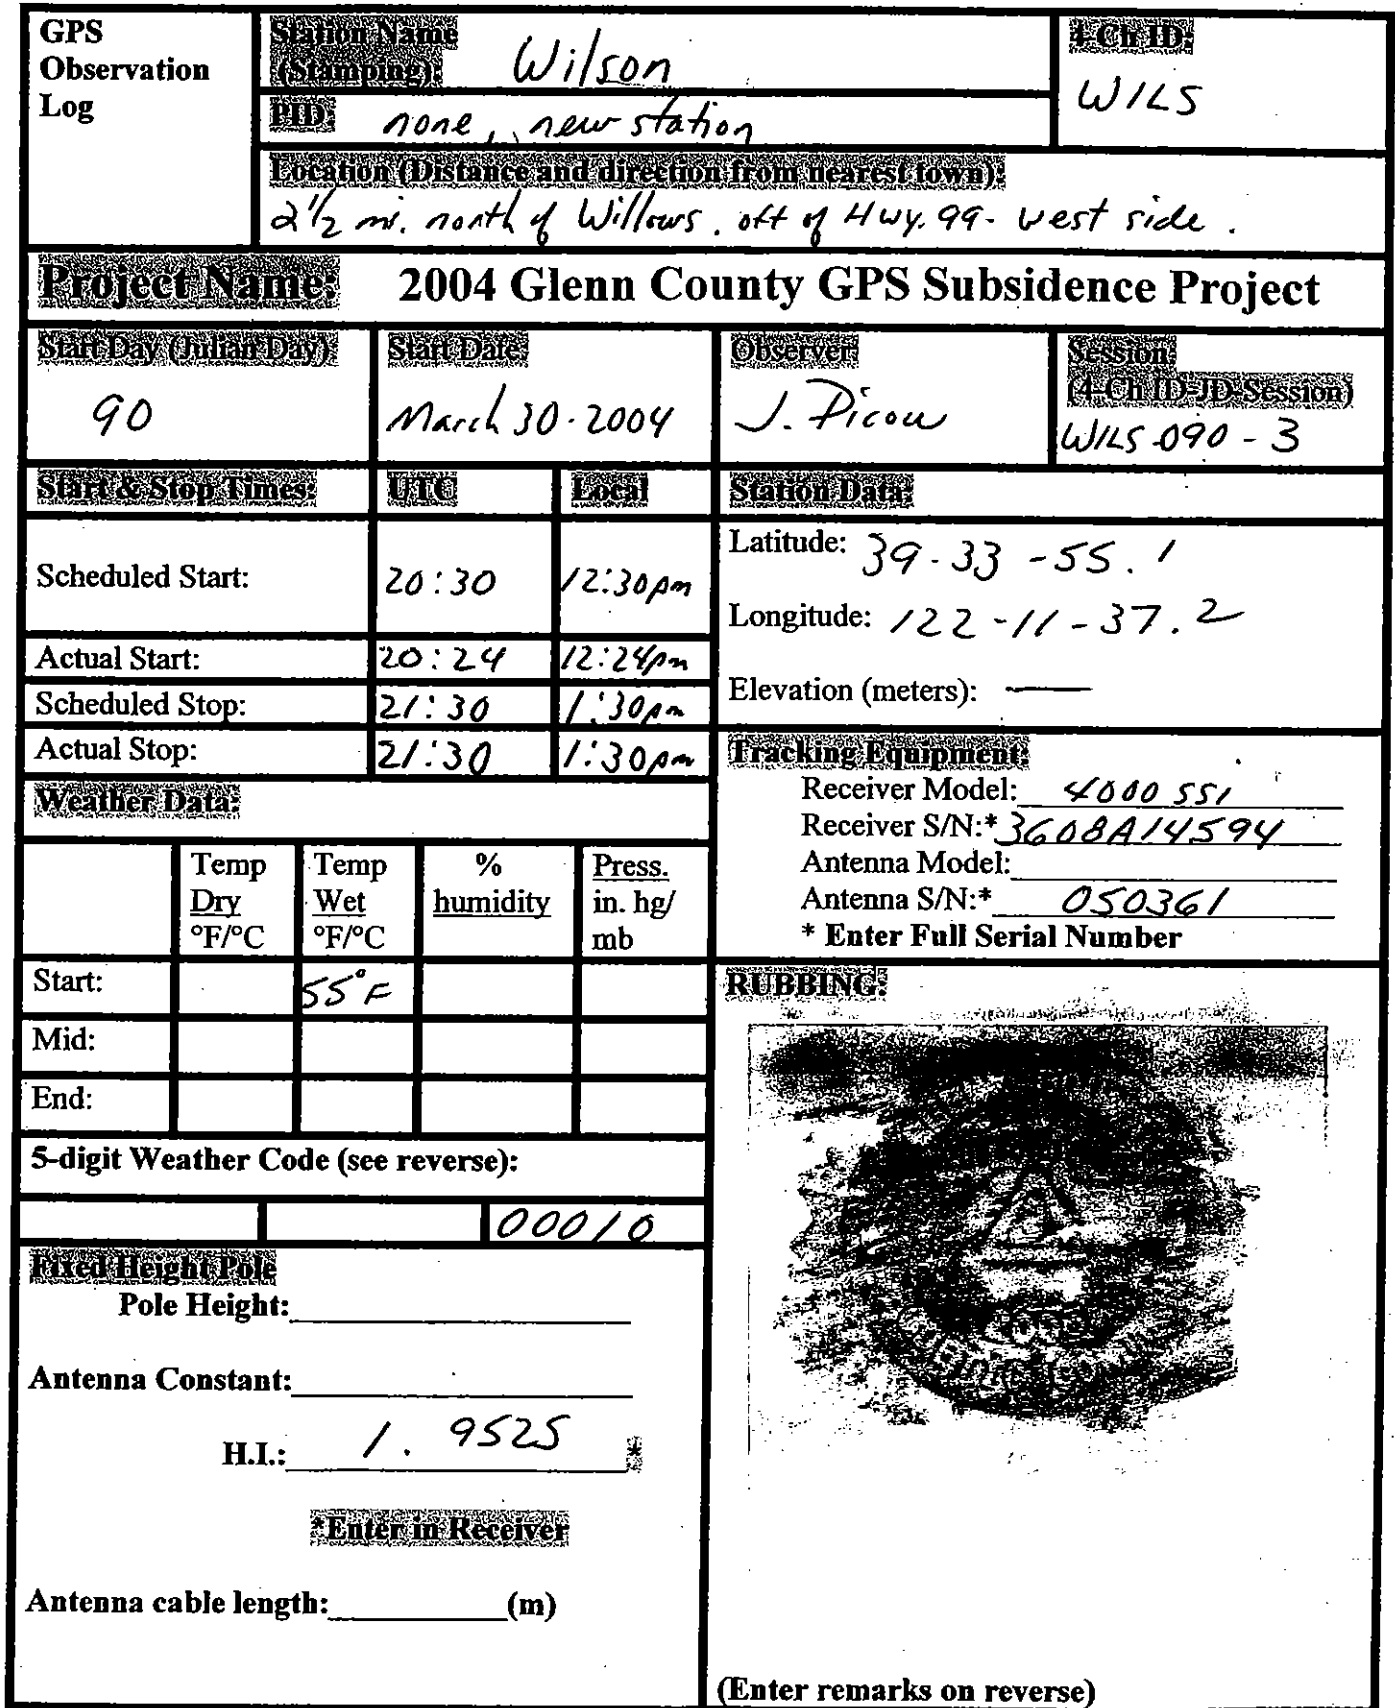 GPS
Observation
Log
Station Name
(Stamping): Wilson
4-Ch ID:
WILS
PID: none, new station
Location (Distance and direction from nearest town):
2 1/2 mi. north of Willows. off of Hwy. 99 - west side.
Project Name: 2004 Glenn County GPS Subsidence Project
Start Day (Julian Day)
90
Start Date:
March 30-2004
Observer:
J. Picou
Session:
(4-Ch ID-JD-Session)
WILS-090-3
Start & Stop Times: UTC Local
Scheduled Start: 20:30 12:30pm
Actual Start: 20:24 12:24pm
Scheduled Stop: 21:30 1:30pm
Actual Stop: 21:30 1:30pm
Station Data:
Latitude: 39-33-55.1
Longitude: 122-11-37.2
Elevation (meters): —
Tracking Equipment:
Receiver Model: 4000 SSI
Receiver S/N:* 3608A14594
Antenna Model:
Antenna S/N:* 050361
* Enter Full Serial Number
Weather Data:
Temp Dry °F/°C
Temp Wet °F/°C
% humidity
Press. in. hg/ mb
Start: 55°F
Mid:
End:
5-digit Weather Code (see reverse):
00010
Fixed Height Pole
Pole Height:
Antenna Constant:
H.I.: 1.9525 *
*Enter in Receiver
Antenna cable length: (m)
RUBBING:
(Enter remarks on reverse)